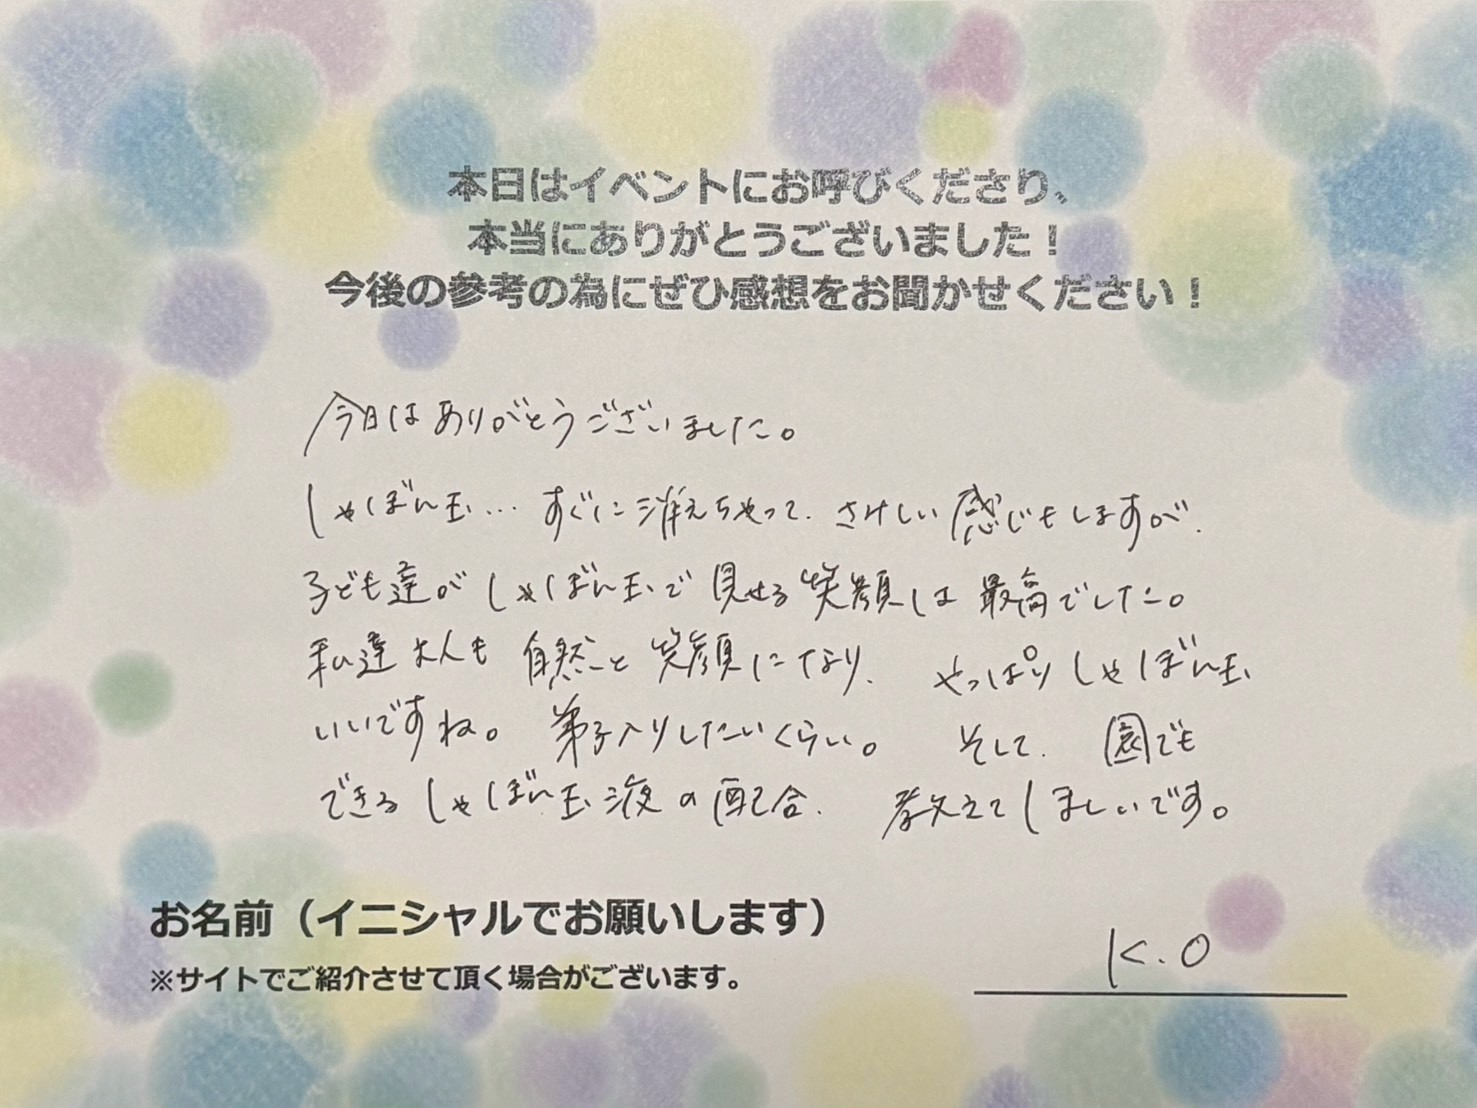 本日はイベントにお呼びくださり、
本当にありがとうございました！
今後の参考の為にぜひ感想をお聞かせください！
今日はありがとうございました。
しゃぼん玉… すぐに消えちゃって、さみしい感じもしますが、
子ども達がしゃぼん玉で見せる笑顔は最高でした。
私達大人も自然と笑顔になり、やっぱりしゃぼん玉
いいですね。弟子入りしたいくらい。そして、園でも
できるしゃぼん玉液の配合、教えてほしいです。
お名前（イニシャルでお願いします）
※サイトでご紹介させて頂く場合がございます。
K.O